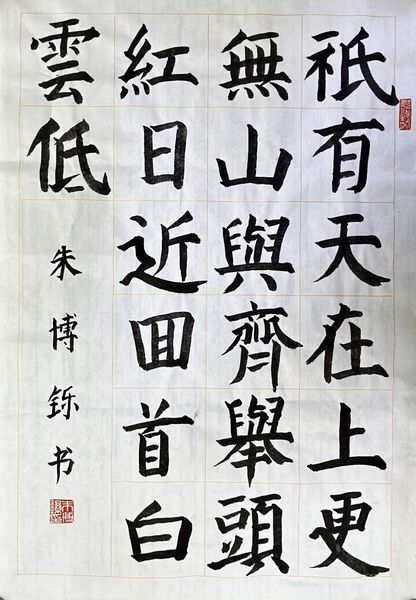 祇有天在上更
無山與齊舉頭
紅日近回首白
雲低
朱博铄书